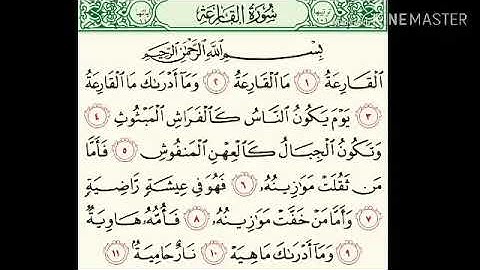 NEMASTER
سُورَةُ القَارِعَةِ
بِسْمِ ٱللَّهِ ٱلرَّحْمَٰنِ ٱلرَّحِيمِ
ٱلْقَارِعَةُ ١ مَا ٱلْقَارِعَةُ ٢ وَمَآ أَدْرَىٰكَ مَا ٱلْقَارِعَةُ
٣ يَوْمَ يَكُونُ ٱلنَّاسُ كَٱلْفَرَاشِ ٱلْمَبْثُوثِ ٤
وَتَكُونُ ٱلْجِبَالُ كَٱلْعِهْنِ ٱلْمَنفُوشِ ٥ فَأَمَّا
مَن ثَقُلَتْ مَوَٰزِينُهُۥ ٦ فَهُوَ فِى عِيشَةٍ رَّاضِيَةٍ
٧ وَأَمَّا مَنْ خَفَّتْ مَوَٰزِينُهُۥ ٨ فَأُمُّهُۥ هَاوِيَةٌ
٩ وَمَآ أَدْرَىٰكَ مَا هِيَهْ ١٠ نَارٌ حَامِيَةٌۢ ١١